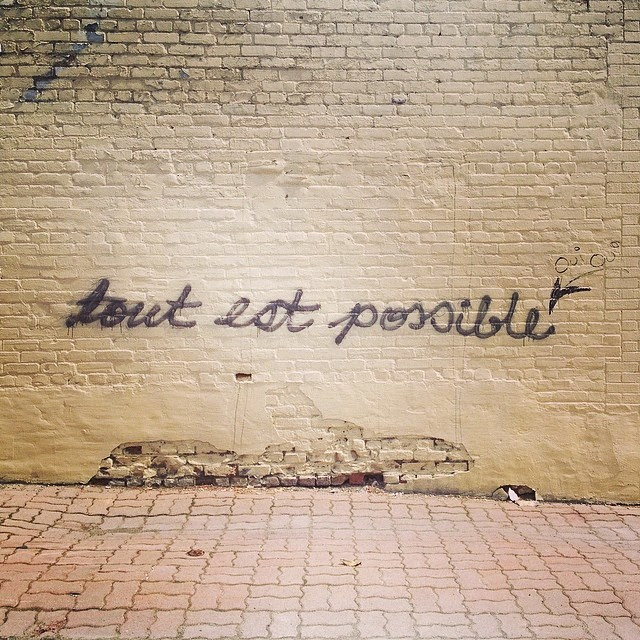 tout est possible
Oui Oui